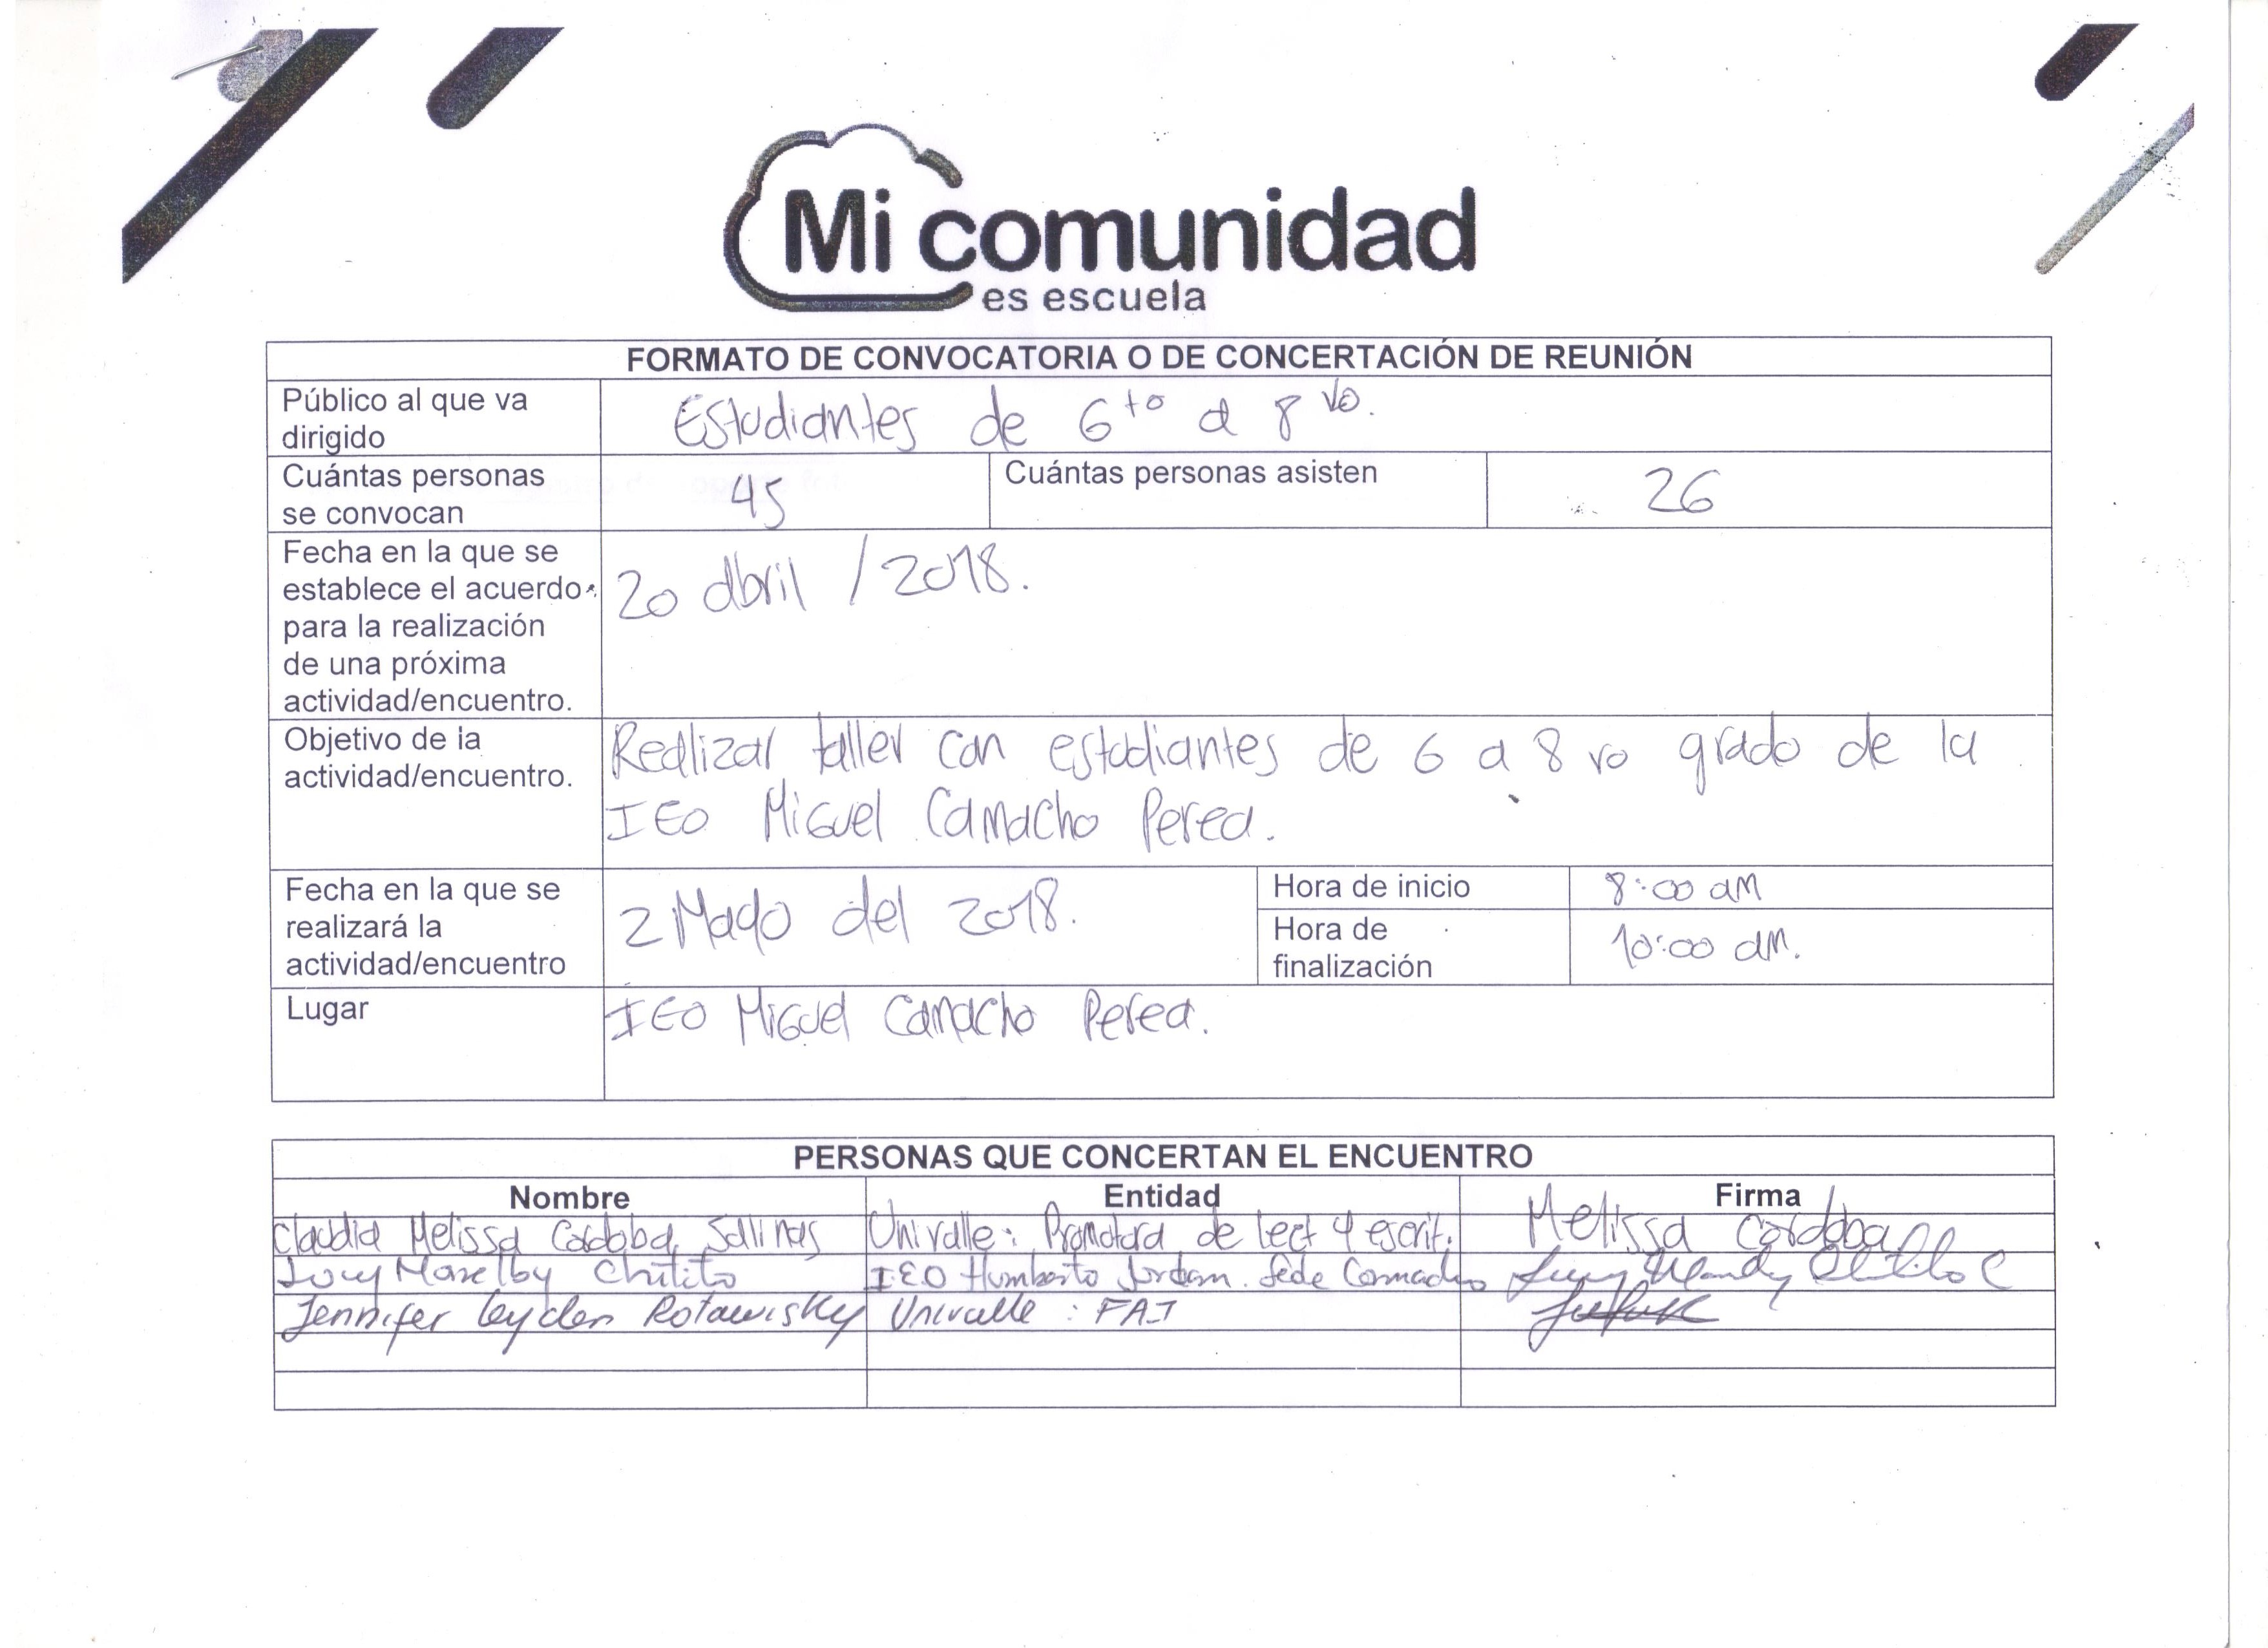 Mi comunidad
es escuela
FORMATO DE CONVOCATORIA O DE CONCERTACIÓN DE REUNIÓN
Público al que va
dirigido
Estudiantes de 6to a 8vo.
Cuántas personas
se convocan
45
Cuántas personas asisten
26
Fecha en la que se
establece el acuerdo
para la realización
de una próxima
actividad/encuentro.
20 abril / 2018.
Objetivo de la
actividad/encuentro.
Realizar taller con estudiantes de 6 a 8 vo grado de la
IEO Miguel Camacho Perea.
Fecha en la que se
realizará la
actividad/encuentro
2 Mayo del 2018.
Hora de inicio
8:00 am
Hora de
finalización
10:00 am.
Lugar
IEO Miguel Camacho Perea.
PERSONAS QUE CONCERTAN EL ENCUENTRO
Nombre Entidad Firma
Claudia Melissa Cordoba Salinas Univalle: Promotora de lect y escrit. Melissa Cordoba
Chilito I.E.O Humberto Jordan. Sede Camacho
Jennifer Leyden Rotawisky Univalle : FAI